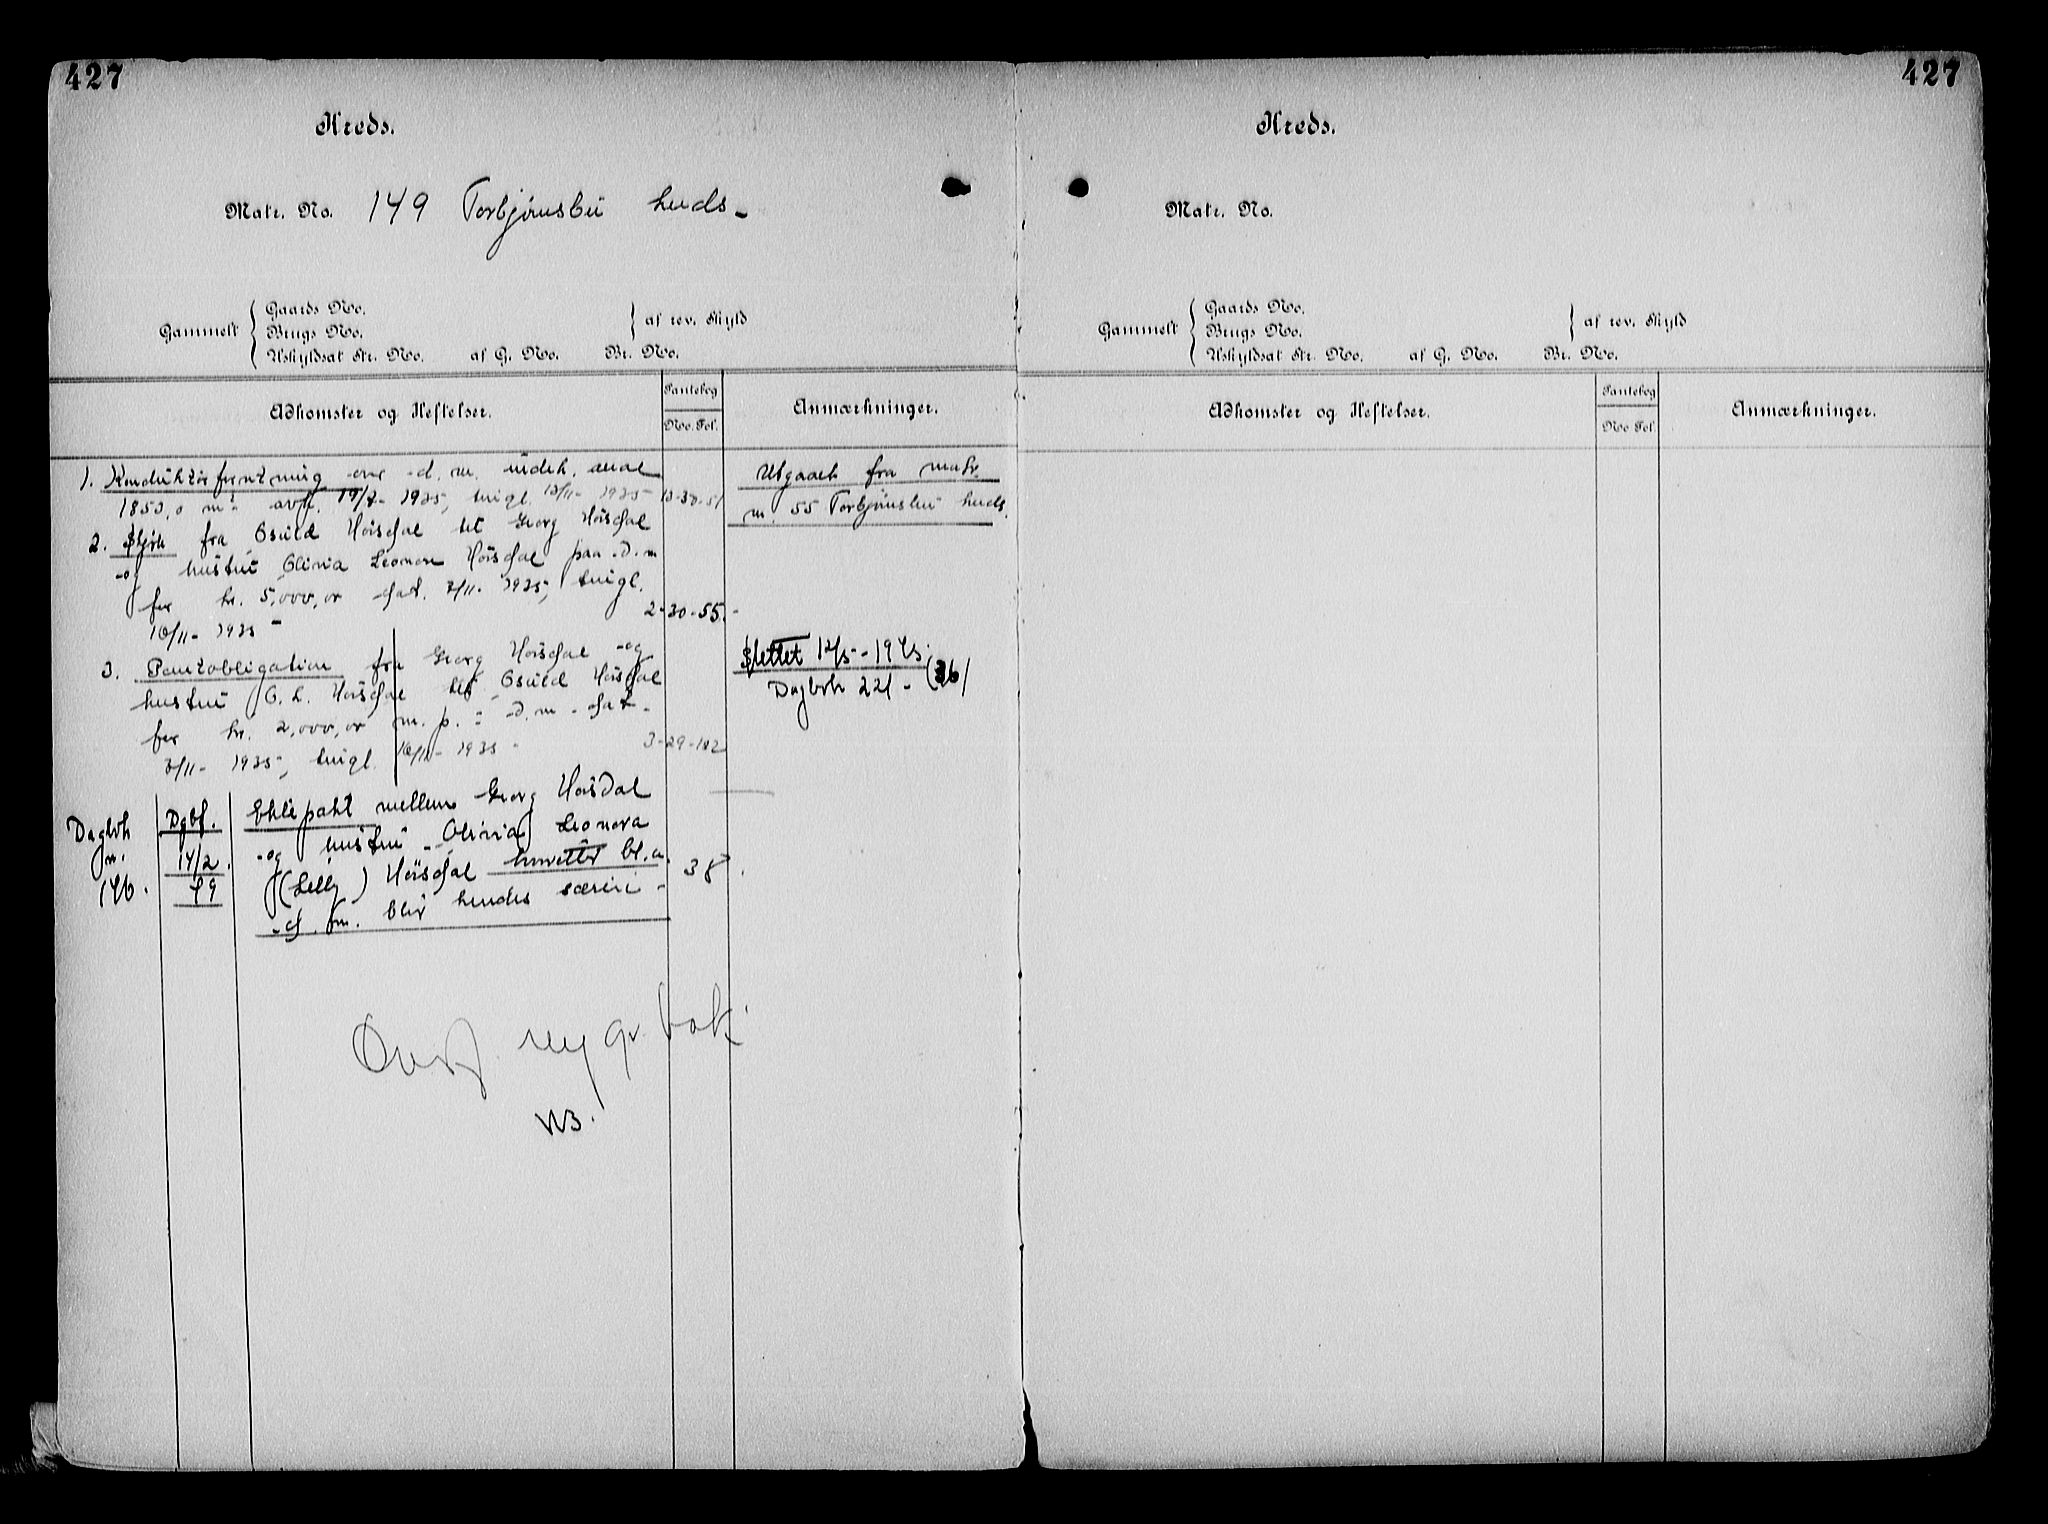 427
Kreds.
Matr. No. 149 Torbjørnsbu huds.
Gammelt
Gaards No.
Brugs No.
Uskyldsat Str. No. af G. No. Br. No.
af rev. Skyld
Adkomster og Heftelser.
Pantebog
No. Fol.
Anmærkninger.
1. Konduktørforretning over d. m. areal
1850,0 m² avh. 1925, tingl. 12/11- 1925
Utgaaet fra matr.
n. 55 Torbjørnsbu huds.
2. Skjøte fra Osuld Høisdal til Georg Høisdal
og hustru Olivia Leonora Høisdal paa d. m
for kr. 5,000,00 dat. 7/11- 1925, tingl.
10/11- 1925 2-30-55.
3. Pantobligation fra Georg Høisdal og
hustru O. L. Høisdal til Osuld Høisdal
for kr. 2,000,00 m. p. i d. m - dat.
7/11- 1925, tingl. 10/11- 1925 3-29-102
Slettet 12/5- 1945.
Dagbok 221 - (36)
Dagbok
n.
146.
Dgbf.
14/2
49
Ektepakt mellem Georg Høisdal
og hustru Olivia Leonora
(Lelly) Høisdal hvoretter bl. a.
d. m. blir hendes særeie - 38.
Overf. ny gr. bok
427
Kreds.
Matr. No.
Gammelt
Gaards No.
Brugs No.
Uskyldsat Str. No. af G. No. Br. No.
af rev. Skyld
Adkomster og Heftelser.
Pantebog
No Fol.
Anmærkninger.